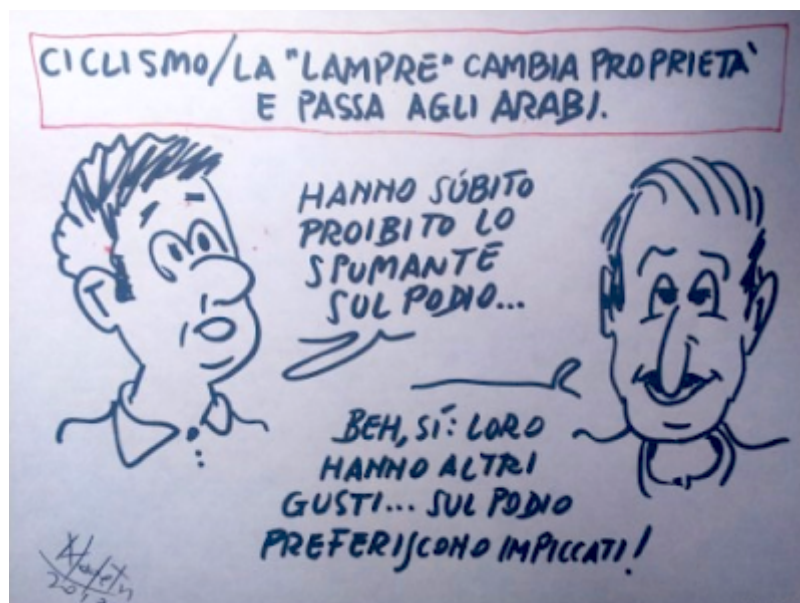 CICLISMO/LA "LAMPRE" CAMBIA PROPRIETÀ
E PASSA AGLI ARABI.
HANNO SÚBITO
PROIBITO LO
SPUMANTE
SUL PODIO...
BEH, SÍ: LORO
HANNO ALTRI
GUSTI... SUL PODIO
PREFERISCONO IMPICCATI!